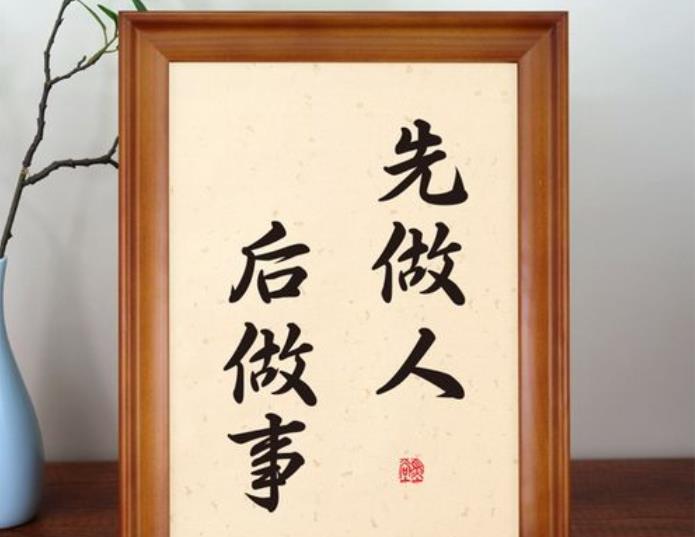 先做人
后做事